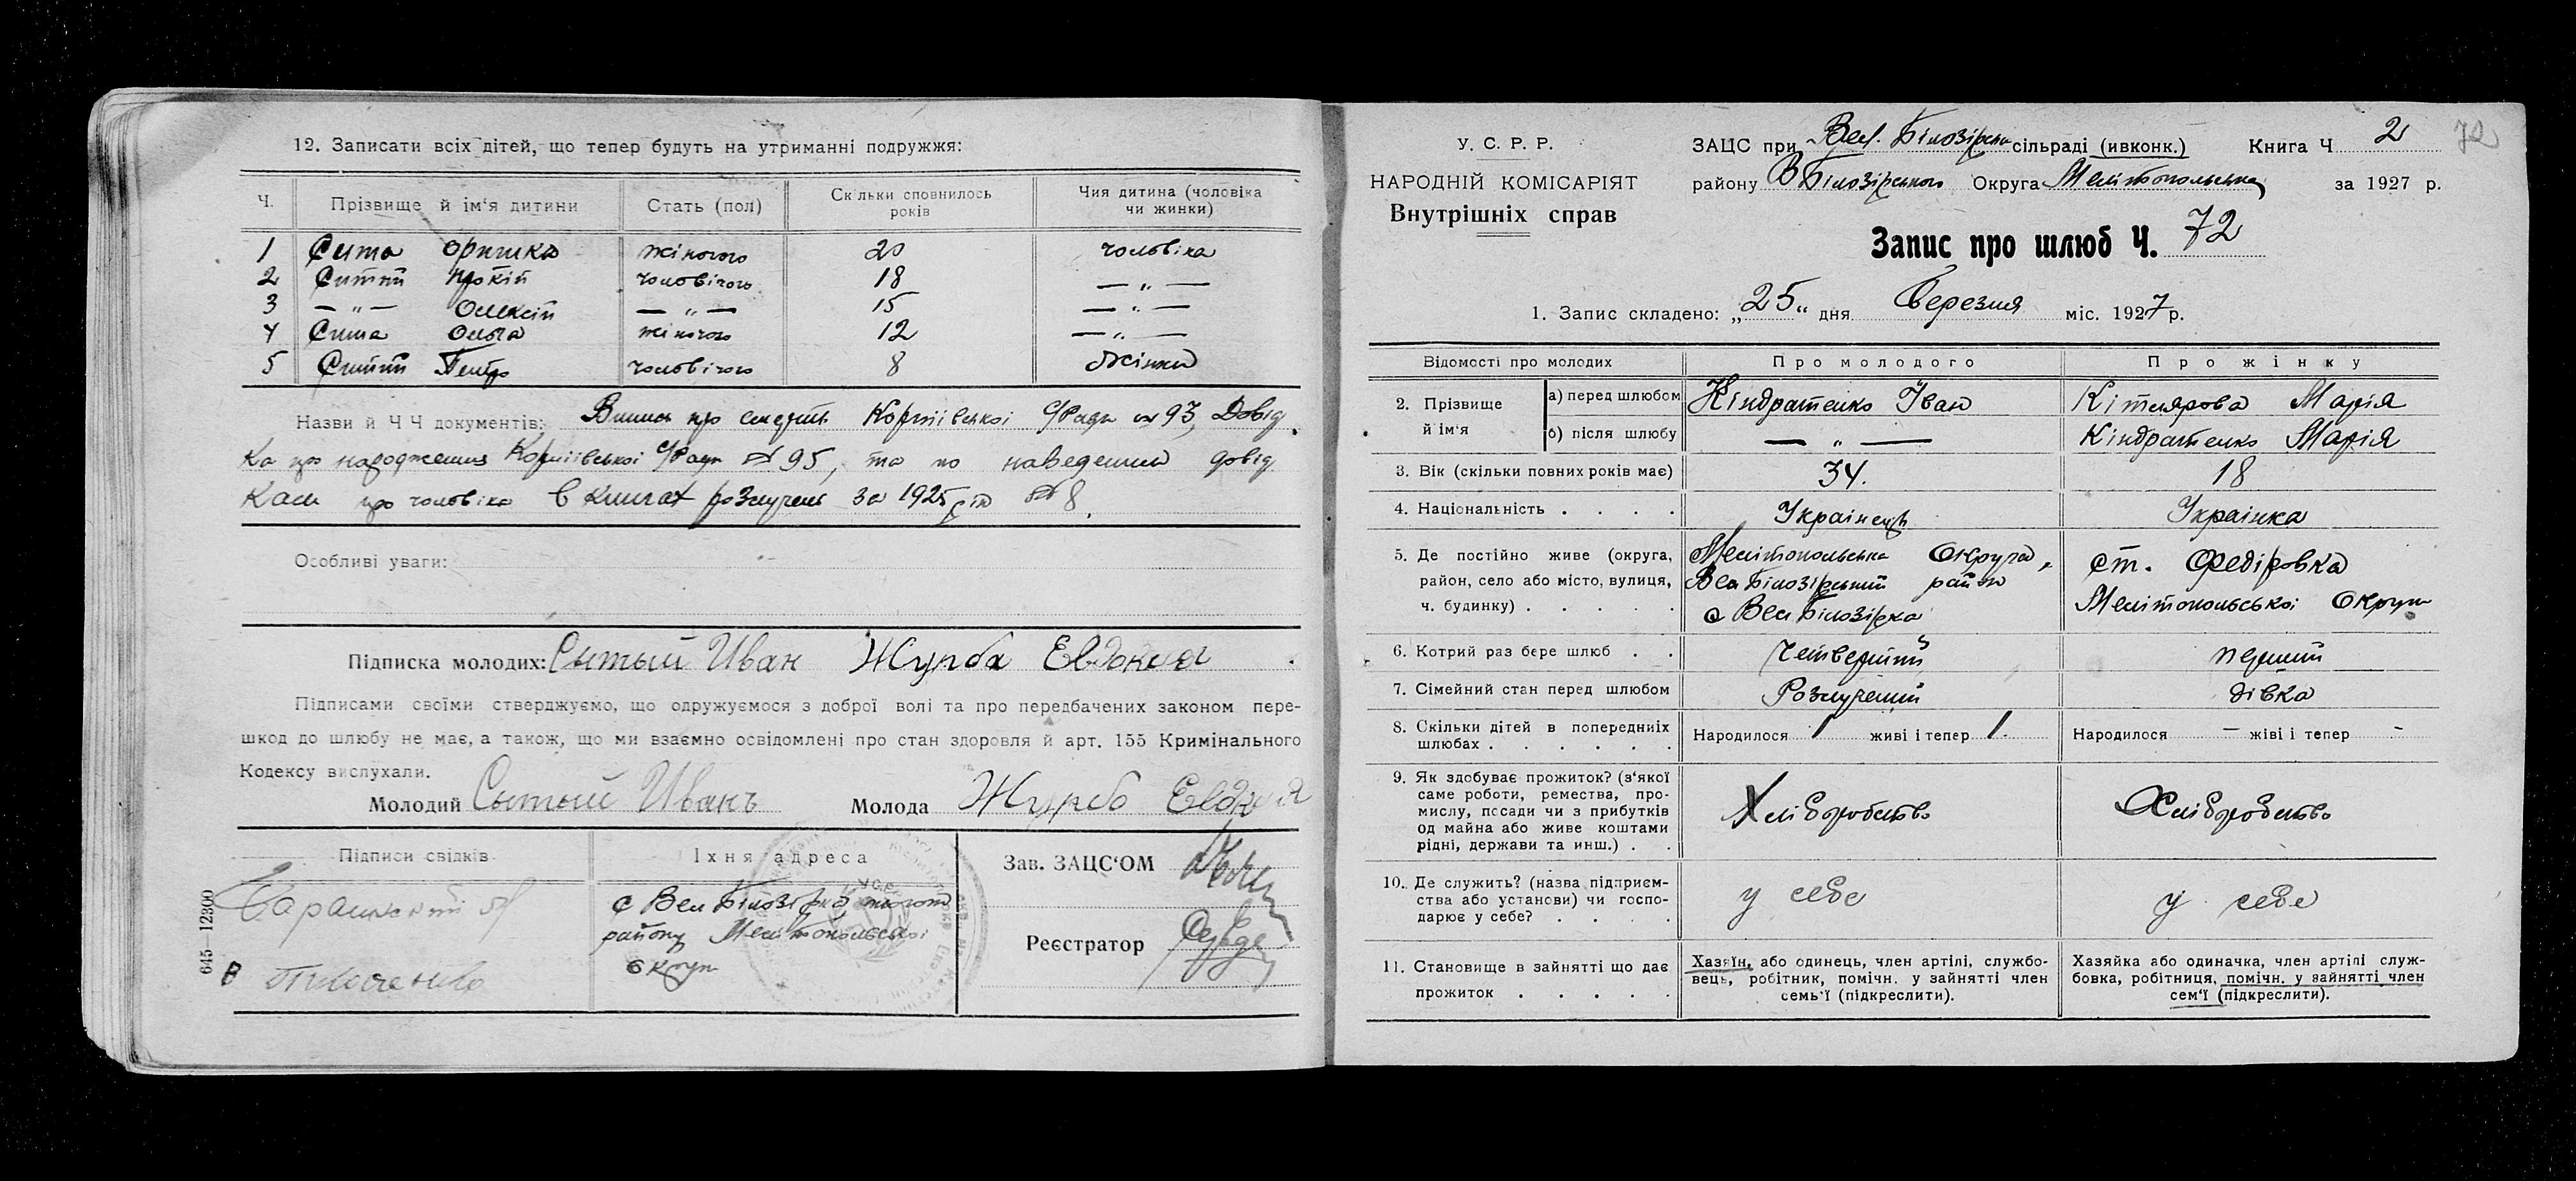 12. Записати всіх дітей, що тепер будуть на утриманні подружжя:
Ч. Прізвище й ім'я дитини Стать (пол) Скільки сповнилось років Чия дитина (чоловіка чи жинки)
1 Сита Оришка жіночого 20 чоловіка
2 Ситий Прокій чоловічого 18 — " —
3 — " — Олексій — " — 15 — " —
4 Сита Ольга жіночого 12 — " —
5 Ситий Петро чоловічого 8 Жінки
Назви й Ч Ч документів: Випись про смерть С/Ради № 93, Довід
ка про народження С/Ради № 95, та по наведеним довід
кам про чоловіка в книгах розлучень за 1925 рік № 8.
Особливі уваги:
Підписка молодих: Сытый Иван Журба Евдокия
Підписами своїми стверджуємо, що одружуємося з доброї волі та про передбачених законом пере-
шкод до шлюбу не має, а також, що ми взаємно освідомлені про стан здоровля й арт. 155 Кримінального
Кодексу вислухали.
Молодий Сытый Иванъ Молода Журба Евдокия
Підписи свідків Їхня адреса Зав. ЗАЦС'ОМ
с Вел Білозірка
району Мелітопольської
Округи
Реєстратор
645—12300
У. С. Р. Р.
НАРОДНІЙ КОМІСАРІЯТ
Внутрішніх справ
ЗАЦС при Вел. Білозірськ сільраді (ивконк.) Книга Ч 2 72
району В Білозірського Округа Мелітопольська за 1927 р.
Запис про шлюб Ч. 72
1. Запис складено: „25“ дня Березня міс. 1927 р.
Відомості про молодих Про молодого Про жінку
2. Прізвище й ім'я а) перед шлюбом Кіндратенко Іван Кітлярова Марія
б) після шлюбу — " — Кіндратенко Марія
3. Вік (скільки повних років має) 34. 18
4. Національність Українець Українка
5. Де постійно живе (округа, Мелітопольська Округа, ст. Федіровка
район, село або місто, вулиця, Вел Білозірський район Мелітопольської Округи
ч. будинку) с Вел Білозірка
6. Котрий раз бере шлюб Четвертий перший
7. Сімейний стан перед шлюбом Розлучений дівка
8. Скільки дітей в попередниіх шлюбах Народилося 1 живі і тепер 1. Народилося — жіві і тепер -
9. Як здобуває прожиток? (з'якої
саме роботи, ремества, про-
мислу, посади чи з прибутків Хліборобство Хліборобство
од майна або живе коштами
рідні, держави та инш.)
10. Де служить? (назва підприєм-
ства або установи) чи госпо- у себе у себе
дарює у себе?
11. Становище в зайнятті що дає прожиток
Хазяїн, або одинець, член артілі, службо-
вець, робітник, помічн. у зайнятті член
семь'ї (підкреслити).
Хазяйка або одиначка, член артілі служ-
бовка, робітниця, помічн. у зайнятті член
сем'ї (підкреслити).